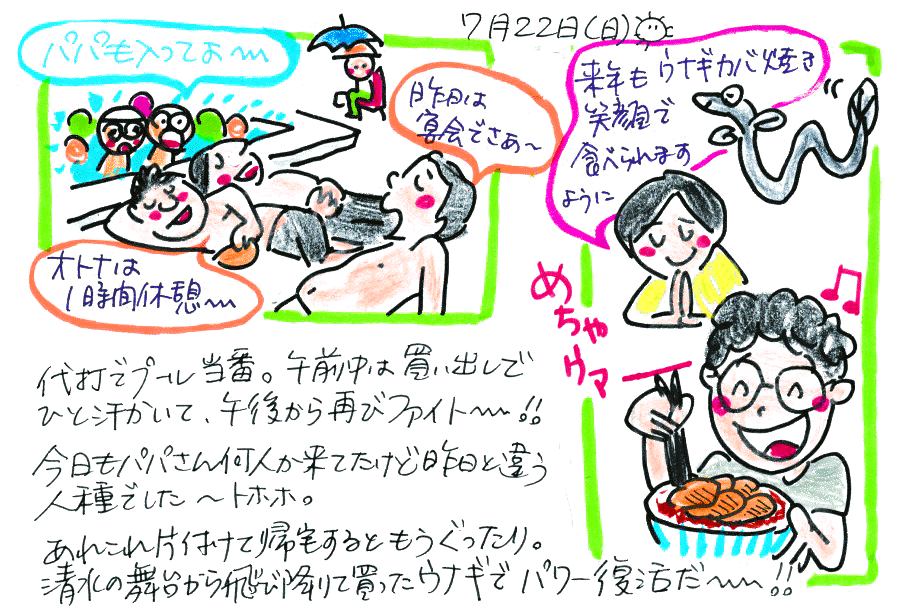 7月22日(日)
パパも入ってよ〜
昨日は
宴会でさぁ〜
オトナは
1時間休憩〜
来年もウナギカバ焼き
笑顔で
食べられます
ように
めちゃウマー
代打でプール当番。午前中は買い出しで
ひと汗かいて、午後から再びファイト〜!!
今日もパパさん何人か来てたけど昨日と違う
人種でした〜トホホ。
あれこれ片付けて帰宅するともうぐったり。
清水の舞台から飛び降りて買ったウナギでパワー復活だ〜!!